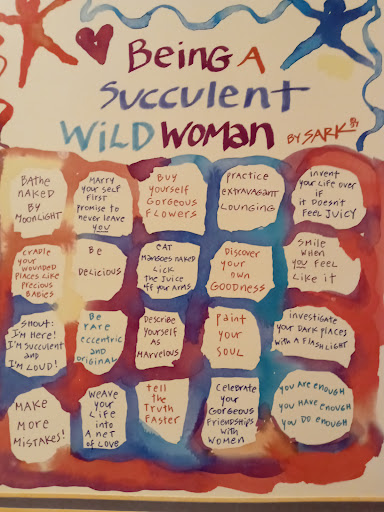 BEING A
SUCCULENT
WILD WOMAN BY SARK
BATHE
NAKED
BY
MOONLIGHT
MARRY
your self
First
promise to
never leave
you
BUY
yourself
GORGEOUS
FLOWERS
practice
EXTRAVAGANT
LOUNGING
invent
your Life over
if
it Doesn't
FEEL JUICY
CRADLE
your
WOUNDED
PLACES LIKE
PRECIOUS
BABIES
BE
DELICIOUS
EAT
MANGOES NAKED
LICK
the JUICE
off your ARMS
Discover
your
own
GOODNESS
SMILE
WHEN
you FEEL
LIKE it
SHOUT:
I'M HERE!
I'M SUCCULENT
AND
I'M LOUD!
Be
rare
eccentric
AND
ORIGINAL
DESCRIBE
yourself
AS
MARVELOUS
PAINT
your
SOUL
investigate
your DARK PLACES
WITH
A FLASHLIGHT
MAKE
MORE
MISTAKES!
WEAVE
your
LIFE
into
A NET
OF LOVE
tell
the
Truth
Faster
Celebrate
your
Gorgeous
Friendships
with
WOMEN
you ARE ENOUGH
you HAVE ENOUGH
you DO ENOUGH